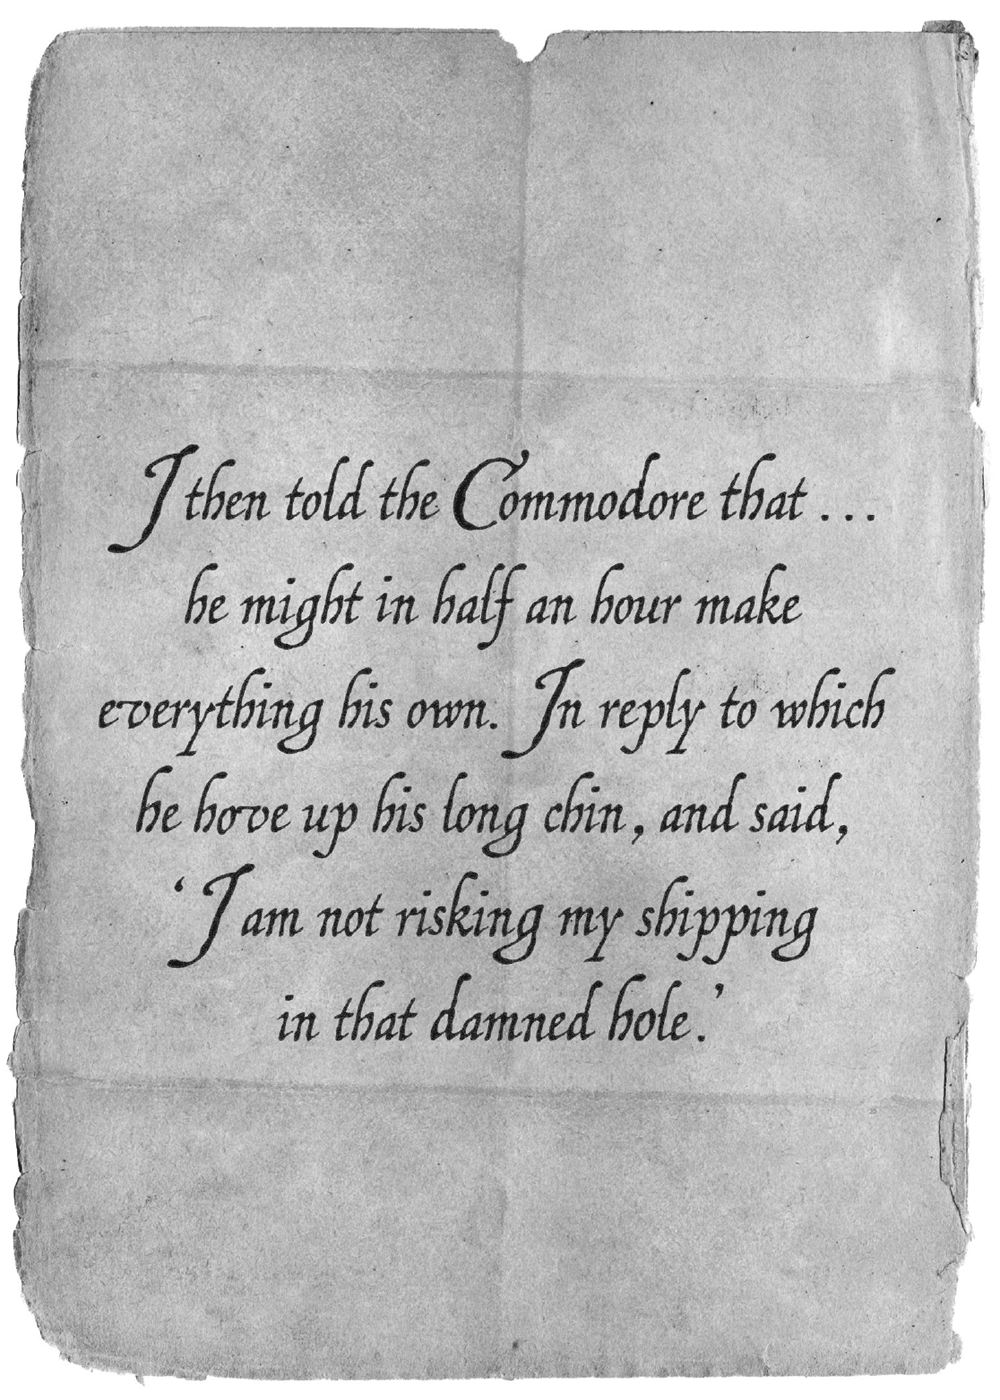 I then told the Commodore that . . .
he might in half an hour make
everything his own. In reply to which
he hove up his long chin, and said,
‘I am not risking my shipping
in that damned hole.’